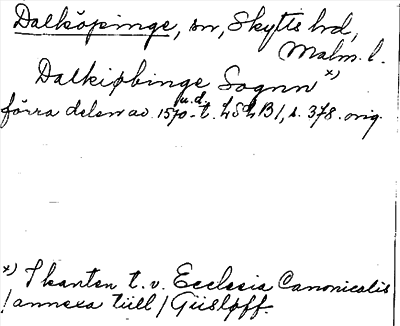 Dalköpinge, sn, Skytts hd,
Malm. l.
Dalkiøbinge Sognn x)
förra delen av 1570-t. u.d. LSLB 1, s. 378. orig.
x) I kanten t.v. Ecclesia Canonicalis
/annexa tiill/ Giisløff.